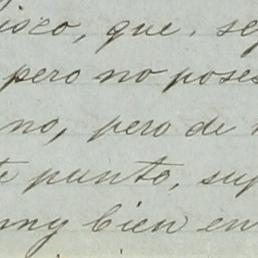 que, se
pero no poses
no, pero de
te punto, sup
my bien en